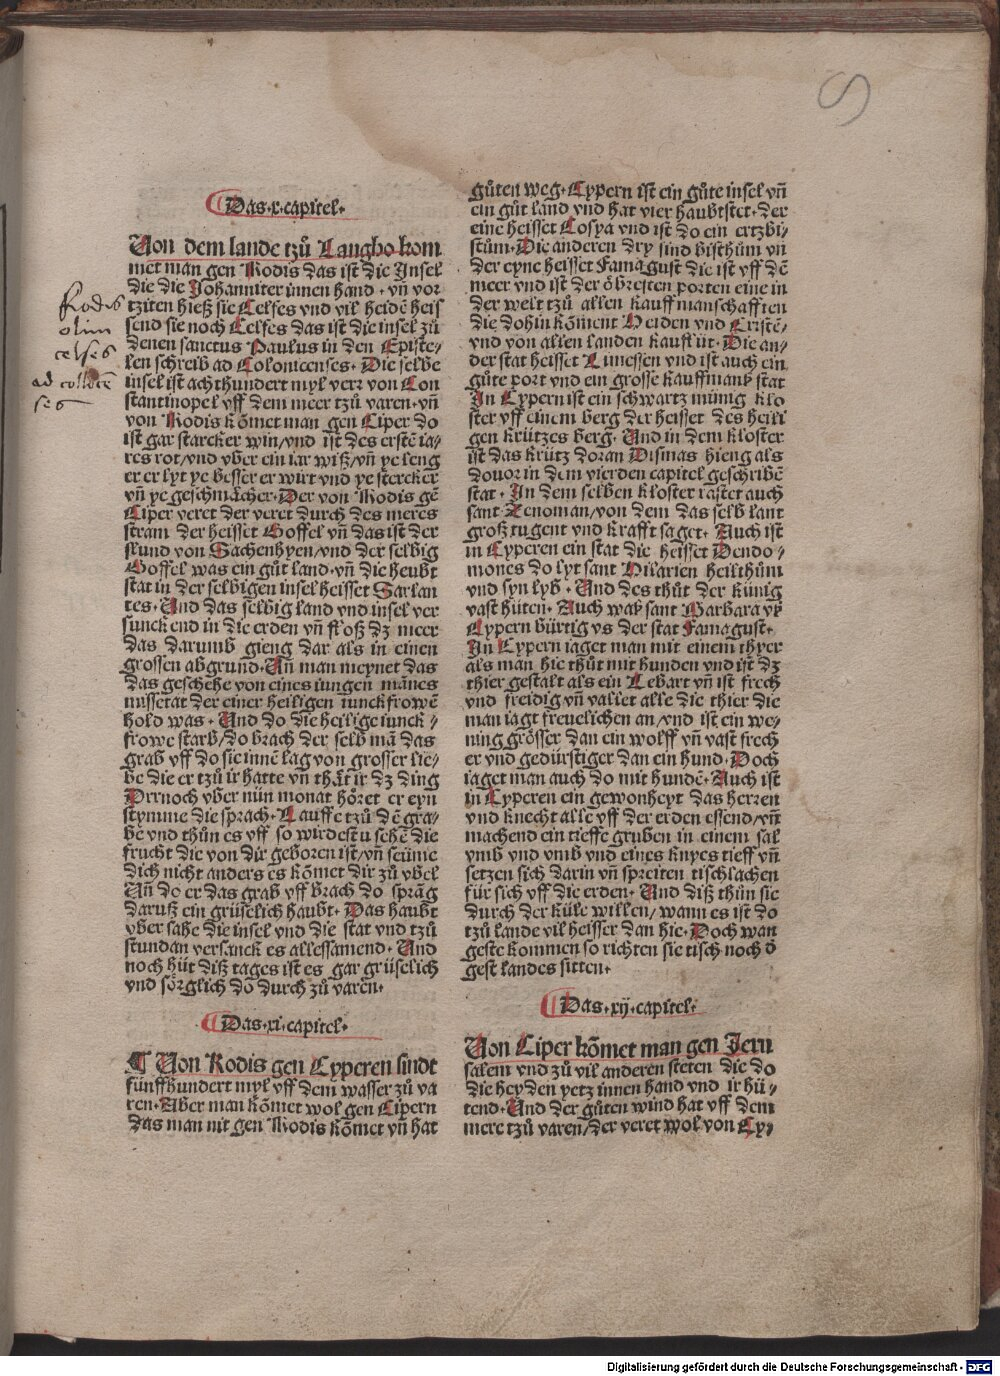 Das·x·capitel·
Von dem lande tzů Langho kom
met man gen Rodis das ist die Insel
die die Johanniter innen hand · vñ vor
tziten hieß sie Celses vnd vil heidē heis
send sie noch Celses das ist die insel zů
denen sanctus Paulus in den Episte⸗
len schreib ad Colonicenses· Die selbe
insel ist achthundert myl verr von Con
stantinopel vff dem meer tzů varen·vñ
von Rodis kōmet man gen Ciper do
ist gar starcker win/vnd ist des erstē ia⸗
res rot/vnd vber ein iar wiß/vñ ye leng
er er lyt ye besser er wirt vnd ye stercker
vñ ye geschmächer·Der von Rodis gē
Ciper veret der veret durch des meres
stram der heisset Goffel vñ das ist der
slund von Sachenhyen/vnd der selbig
Goffel was ein gůt land·vñ die heubt
stat in der selbigen insel heisset Sarlan
tes·Und das selbig land vnd insel ver
sunckend in die erden vñ floß dz meer
das darumb gieng dar als in einen
grossen abgrund·Uñ man meynet das
das geschehe von eines iungen mānes
missetat der einer heiligen iunckfrowē
hold was· Und do die heilige iunck⸗
frowe starb/do brach der selb mā das
grab vff do sie innē lag von grosser lie⸗
be die er tzů ir hatte vñ thāt ir dz ding
Drrnoch vber nün monat höret er eyn
stymme die sprach·Lauffe tzů dē gra⸗
be vnd thůn es vff so wirdestu sehē die
frucht die von dir geboren ist/vñ seüme
dich nicht anders es kōmet dir zů vbel
Uñ do er das grab vff brach do sprāg
daruß ein grüselich haubt· Das haubt
vber sahe die insel vnd die stat vnd tzů
stundan versanck es allessamend· Und
noch hüt diß tages ist es gar grüselich
vnd sörglich do durch zů varen·
Das·xi·capitel·
Von Rodis gen Cyperen sindt
fünffhundert myl vff dem wasser zů va
ren·Aber man kōmet wol gen Cipern
das man nit gen Rodis kōmet vñ hat
gůten weg·Cypern ist ein gůte insel vñ
ein gůt land vnd hat vier haubtstet·der
eine heisset Cosya vnd ist do ein ertzbi⸗
stům·Die anderen dry sind bisthům vñ
der eyne heisset Famagust die ist vff dē
meer vnd ist der öbresten porten eine in
der welt tzů allen kauffmanschafften
die dohin kōment Heiden vnd Cristē/
vnd von allen landen kauflüt· Die an⸗
der stat heisset Limessen vnd ist auch ein
gůte port vnd ein grosse kauffmanß stat
In Cypern ist ein schwartz münig klo
ster vff einem berg der heisset des heili
gen krützes berg· Und in dem kloster
ist das krütz doran Dismas hieng als
dovor in dem vierden capitel geschribē
stat· In dem selben kloster rastet auch
sant Zenoman/von dem das selb lant
groß tugent vnd krafft saget· Auch ist
in Cyperen ein stat die heisset Dendo⸗
mones do lyt sant Hilarien heilthům
vnd syn lyb · Und des thůt der künig
vast hüten· Auch waß sant Barbara vß
Cypern bürtig vs der stat Famagust·
In Cypern iaget man mit einem thyer
als man hie thůt mit hunden vnd ist dz
thier gestalt als ein Lebart vñ ist frech
vnd freidig vñ vallet alle die thier die
man iagt freuelichen an/vnd ist ein we⸗
ning grösser dan ein wolff vñ vast frech
er vnd gedürstiger dan ein hund·Doch
iaget man auch do mit hundē·Auch ist
in Cyperen ein gewonheyt das herren
vnd knecht alle vff der erden essend/vñ
machend ein tieffe gruben in einem sal
vmb vnd vmb vnd eines knyes tieff vñ
setzen sich darin vñ spreiten tischlachen
für sich vff die erden· Und diß thůn sie
durch der küle willen/wann es ist do
tzů lande vil heisser dan hie·Doch wan
geste kommen so richten sie tisch noch ð
gest landes sitten·
Das·xij·capitel·
Von Ciper kōmet man gen Jeru
salem vnd zů vil anderen steten die do
die heyden yetz innen hand vnd ir hü⸗
tend·Und der gůten wind hat vff dem
mere tzů varen/der veret wol von Cy⸗
Rodis
olim
celses
ad collocē
ses
Digitalisierung gefördert durch die Deutsche Forschungsgemeinschaft - DFG